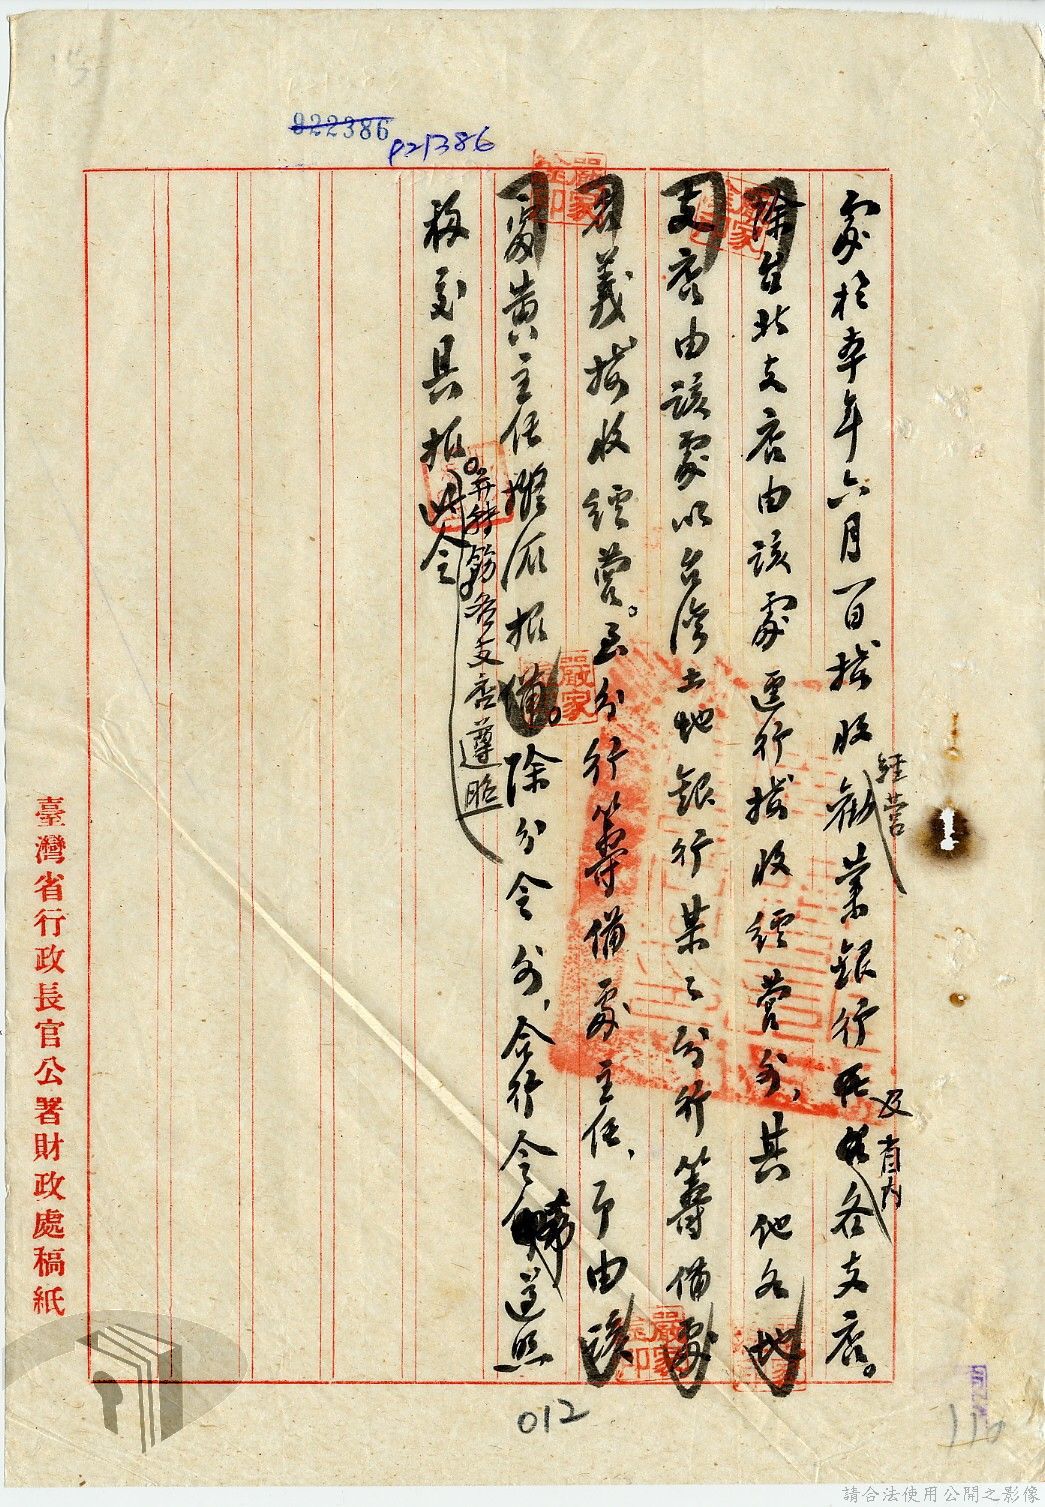 022386
021386
處於本年六月一日接收經營勸業銀行及省內各支店。
除台北支店由該處逕行接收經營外、其他各地
支店由該處以台灣土地銀行某某分行籌備處
名義接收經營。至分行籌備處主任、即由該
處黃主任擬派報備。除分令外、合行令仰遵照
并轉飭各支店遵照
移交具报。此令
臺灣省行政長官公署財政處稿紙
012
116
請合法使用公開之影像